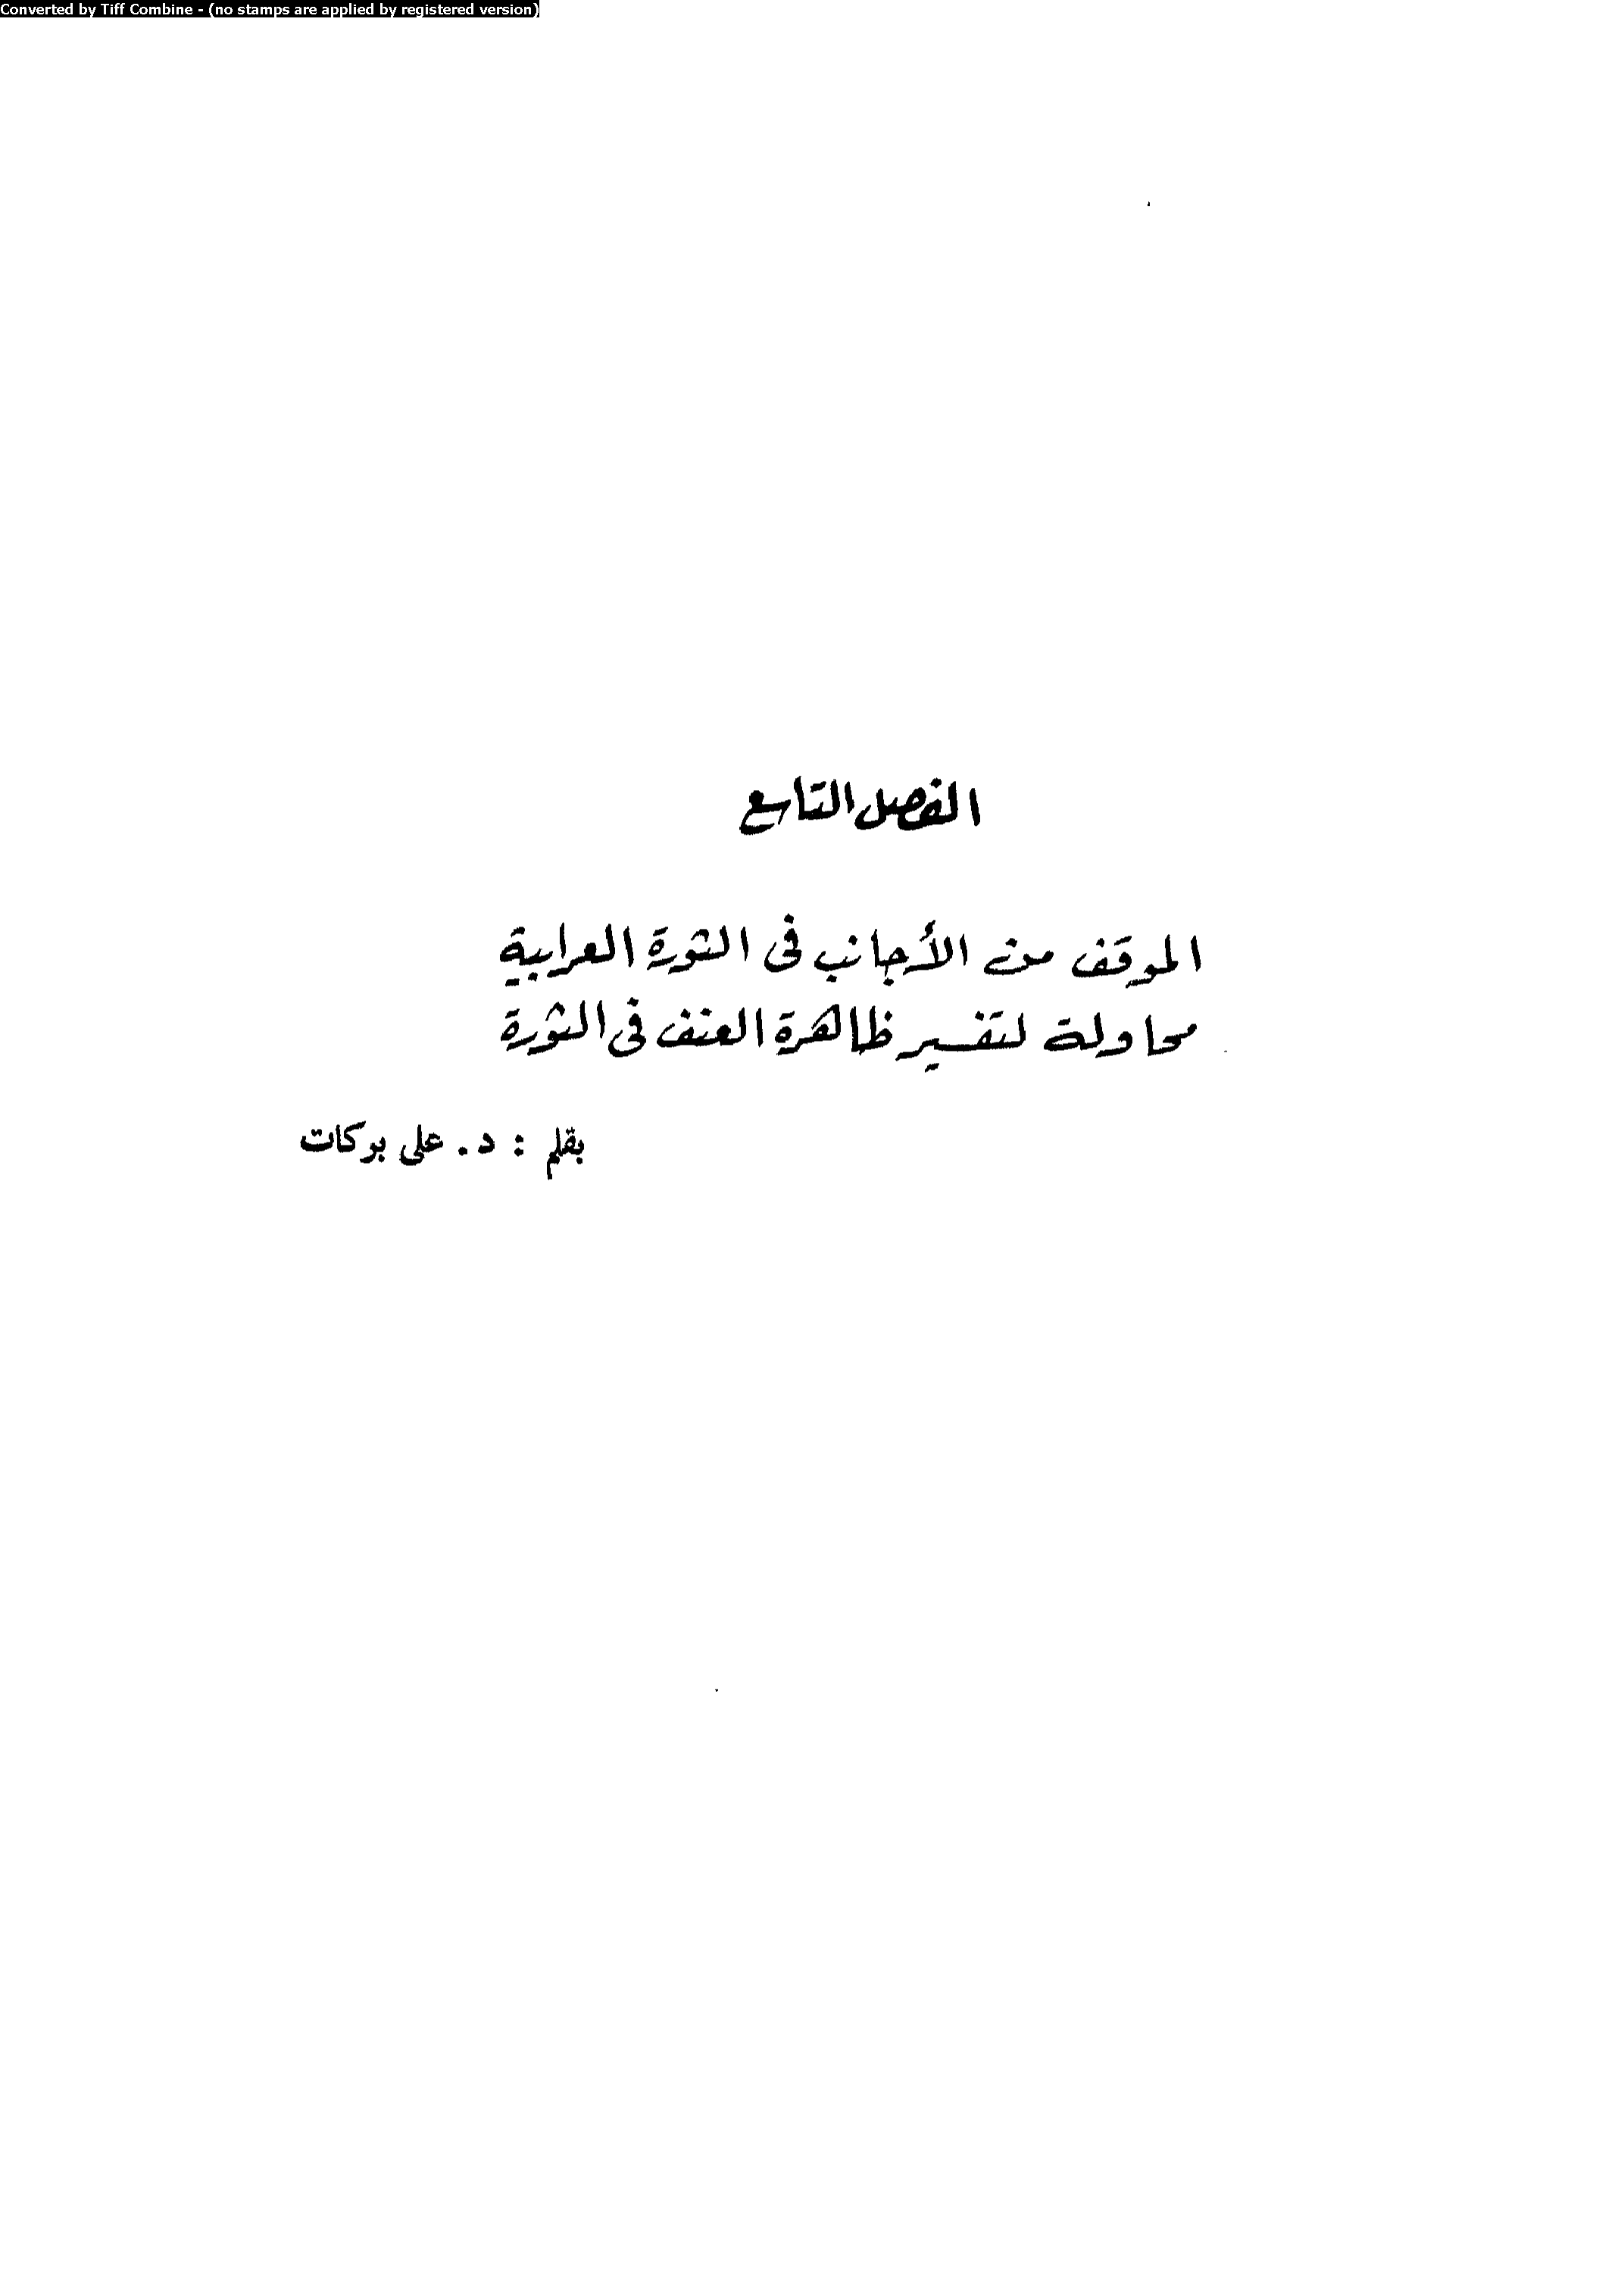 Converted by Tiff Combine - (no stamps are applied by registered version)
الفصل التاسع
الموقف من الأجانب فى الثورة العرابية
محاولة لتفسير ظاهرة العنف فى الثورة
بقلم : د. على بركات